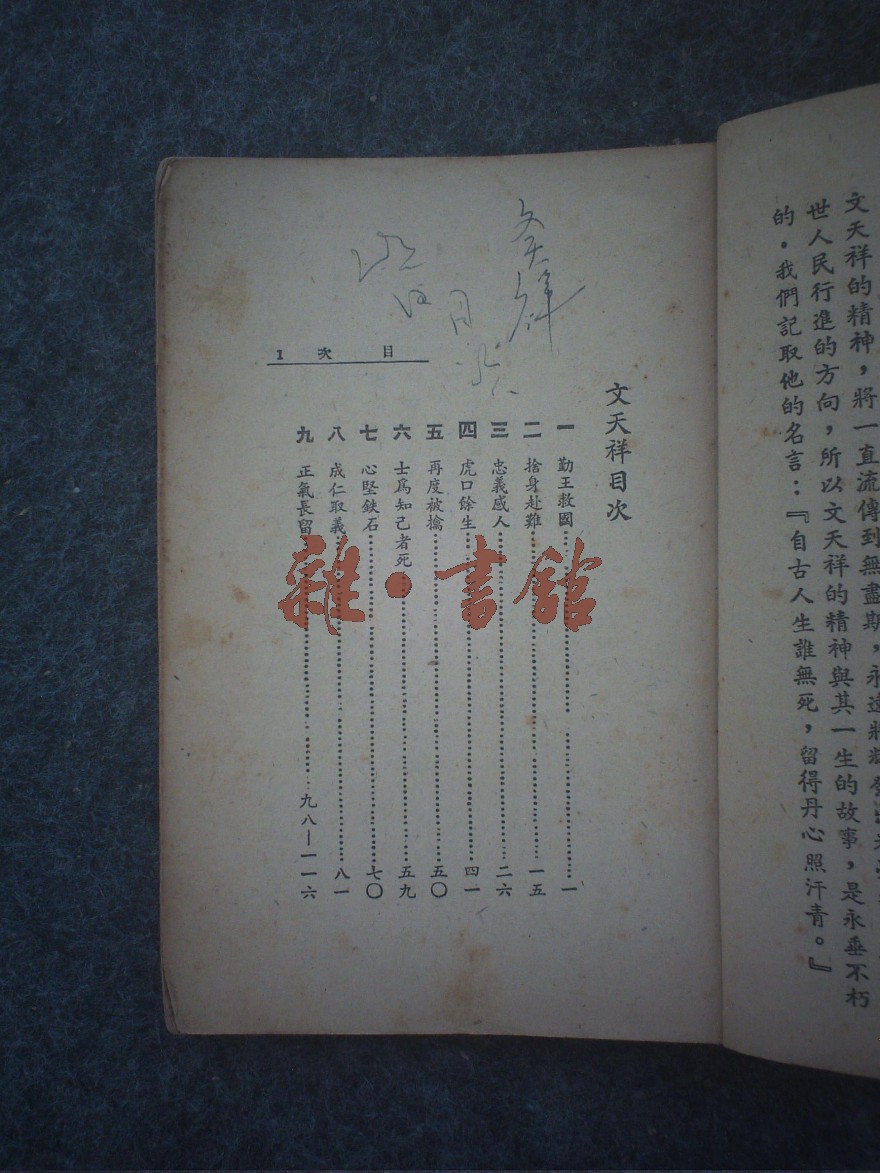 文天祥的精神，將一直流傳到無盡期，永遠將
世人民行進的方向，所以文天祥的精神與其一生的故事，是永垂不朽
的。我們記取他的名言：『自古人生誰無死，留得丹心照汗青。』
文天祥目次
一 勤王救國……一
二 捨身赴難……一五
三 忠義感人……二六
四 虎口餘生……四一
五 再度被擒……五〇
六 士爲知己者死……五九
七 心堅鉄石……七〇
八 成仁取義……八一
九 正氣長留……九八—一一六
目次 1
雜·書館